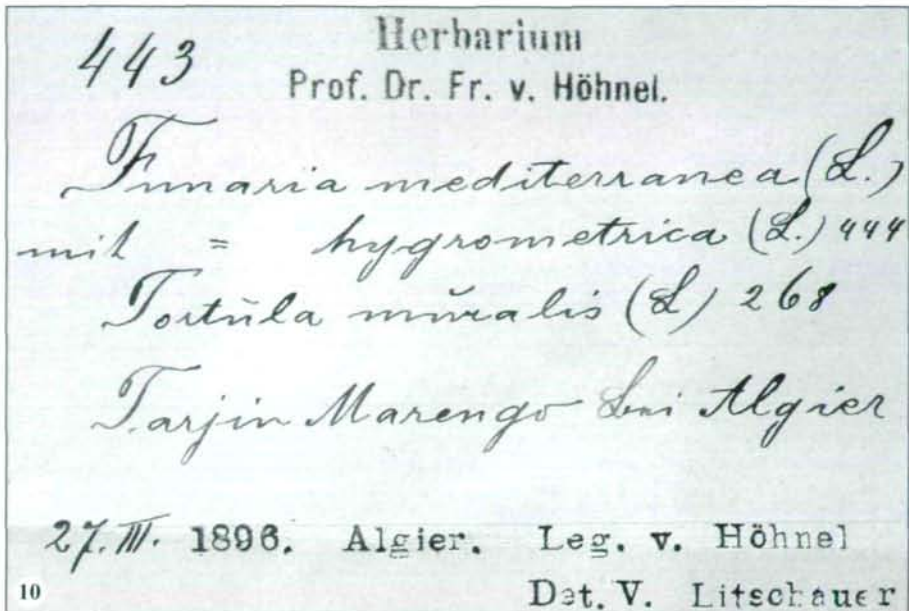 443
Herbarium
Prof. Dr. Fr. v. Höhnel.
Funaria mediterranea (L.)
mit = hygrometrica (L.) 444
Tortŭla mŭralis (L) 268
Tarjin Marengo bei Algier
27. III. 1896. Algier. Leg. v. Höhnel
10 Det. V. Litschauer